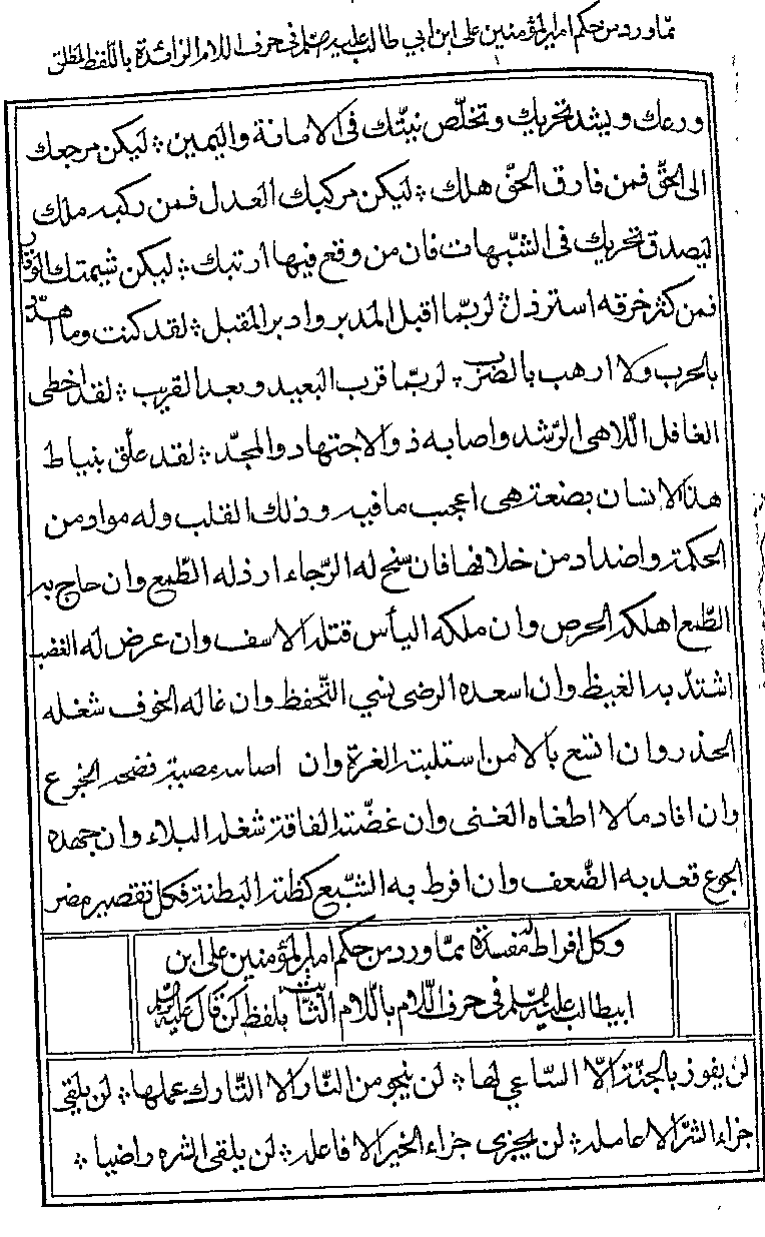 مما ورد من حكم امير المؤمنين على ابن ابي طالب عليه السلم فى حرف اللام الزائدة باللفظ المطلق
ورعك ويشد تحريك وتخلّص نيتّك فى الامانة واليمين ؛ ليكن مرجعك
الى الحقّ فمن فارق الحقّ هلك ؛ ليكن مركبك العدل فمن ركبه ملك
ليصدق تحريك فى الشبّهات فان من وقع فيها ارتبك ؛ ليكن شيمتك الوقار
فمن كثر خرقه استرذل لربّما اقبل المدبر وادبر المقبل ؛ لقد كنت وما اهدّد
بالحرب ولا ارهب بالضرب ؛ لربّما قرب البعيد وبعد القريب ؛ لقد اخطى
الغافل اللاهى الرّشد واصابه ذو الاجتهاد والمجدّ ؛ لقد علّق بنياط
هذا الانسان بضعة هى اعجب ما فيه وذلك القلب وله مواد من
الحكمة واضداد من خلافها فان سنح له الرّجاء ارذله الطّمع وان هاج به
الطّمع اهلكه الحرص وان ملكه اليأس قتله الاسف وان عرض له الغضب
اشتدّ به الغيظ وان اسعده الرضى نسي التّحفظ وان غاله الخوف شغله
الحذر وان اتسع بالامن استلبته الغرّة وان اصابته مصيبة فضحه الجزع
وان افاد مالا اطغاه الغنى وان غضّته الفاقة شغله البلاء وان جهده
الجوع قعد به الضّعف وان افرط به الشبّع كظّته البطنة فكل تقصير مضر
وكل افراط مفسدة مما ورد من حكم امير المؤمنين على ابن
ابيطالب عليه السلم فى حرف اللّام باللّام الثّابت بلفظ لن قال عليه السلم
لن يفوز بالجنّة الّا السّاعي لها ؛ لن ينجو من النّار الا التّارك عملها ؛ لن يلقى
جزاء الشرّ الا عامله ؛ لن يجزى جزاء الخير الا فاعله ؛ لن يلقى الشره راضيا ؛